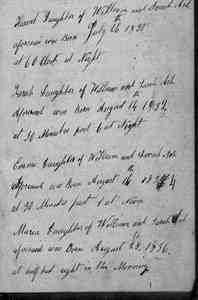 Daughter of William and Sarah Ash
aforesaid was Born July 16th
at 6 O Clock at Night
Sarah Daughter of William and Sarah Ash
Aforesaid was Born August 14th 1852
at 30 Minutes past 6 at Night
Emma Daughter of William and Sarah Ash
Aforesaid was Born August 16th
at 30 Minutes past 1 at Noon
Maria Daughter of William and Sarah Ash
aforesaid was Born August 28, 1856.
at half past eight in the Morning